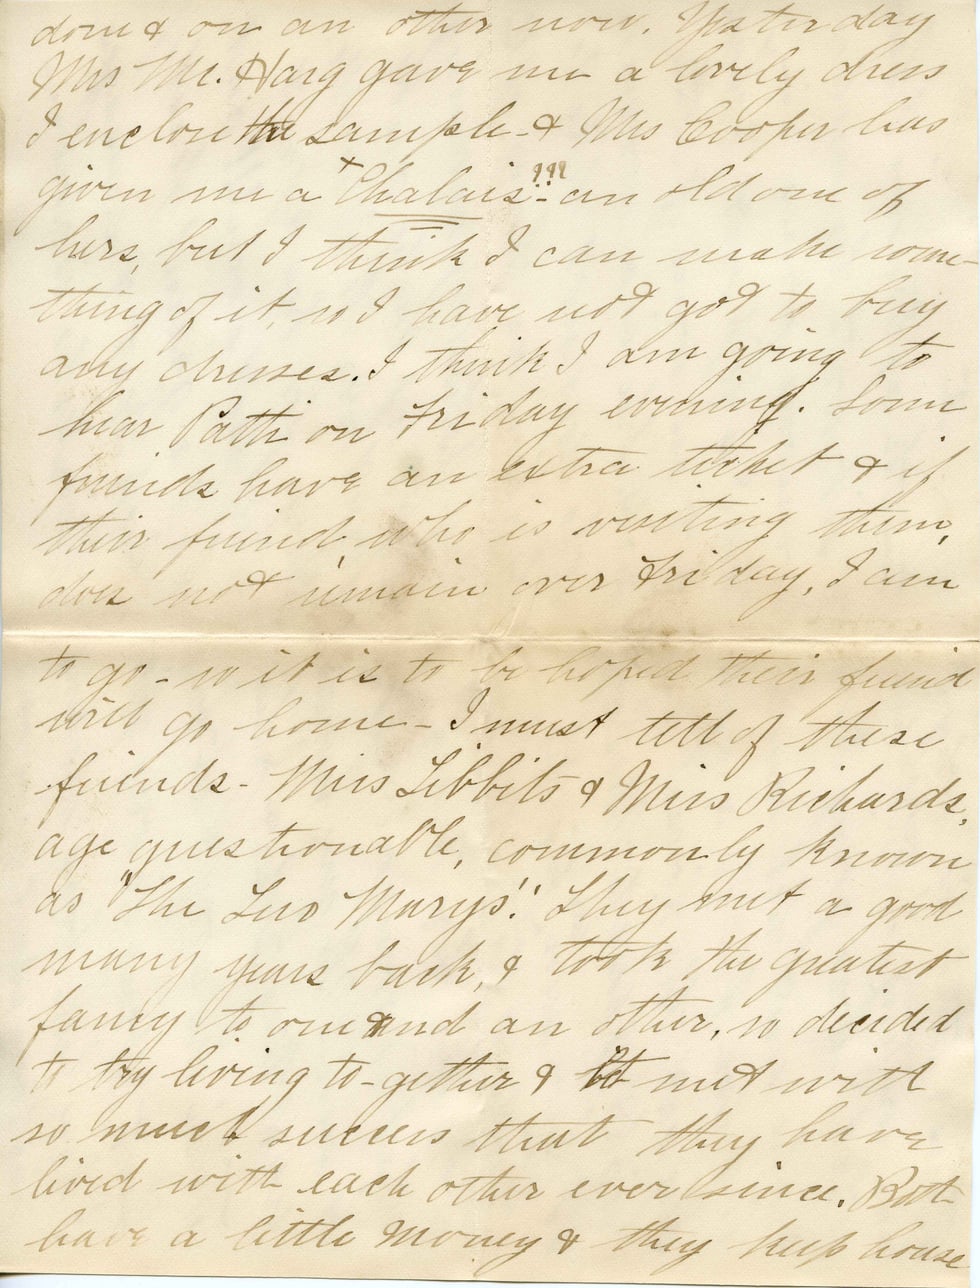 done & on an other now. Yesterday
Mrs Mc. Harg gave me a lovely dress
I enclose the sample - & Mrs Cooper has
given me a "Chalais"!!! an old one of
hers, but I think I can make some-
thing of it, so I have not got to buy
any dresses. I think I am going to
hear Patti on Friday evening. Some
friends have an extra ticket & if
their friend, who is visiting them,
does not remain over Friday, I am
to go - so it is to be hoped their friend
will go home - I must tell of these
friends - Miss Libbits & Miss Richards,
age questionable, commonly known
as "The Two Marys". They met a good
many years back, & took the greatest
fancy to one and an other, so decided
to try living to-gether & it met with
so much success that they have
lived with each other ever since. Both
have a little money & they keep house